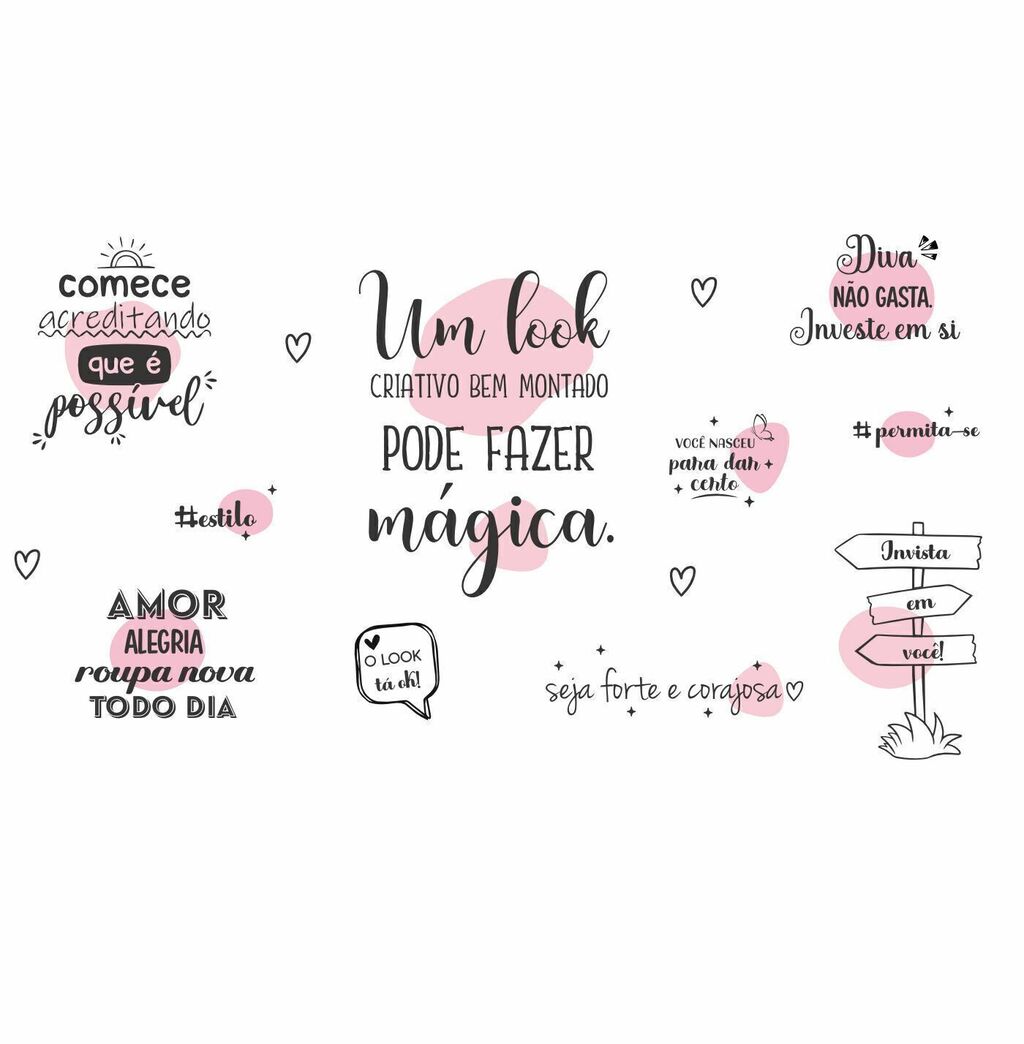 comece
acreditando
que é
possível
#estilo
AMOR
ALEGRIA
roupa nova
TODO DIA
Um look
CRIATIVO BEM MONTADO
PODE FAZER
mágica.
O LOOK
tá ok!
Diva
NÃO GASTA.
Investe em si
VOCÊ NASCEU
para dar
certo
#permita-se
seja forte e corajosa
Invista
em
você!